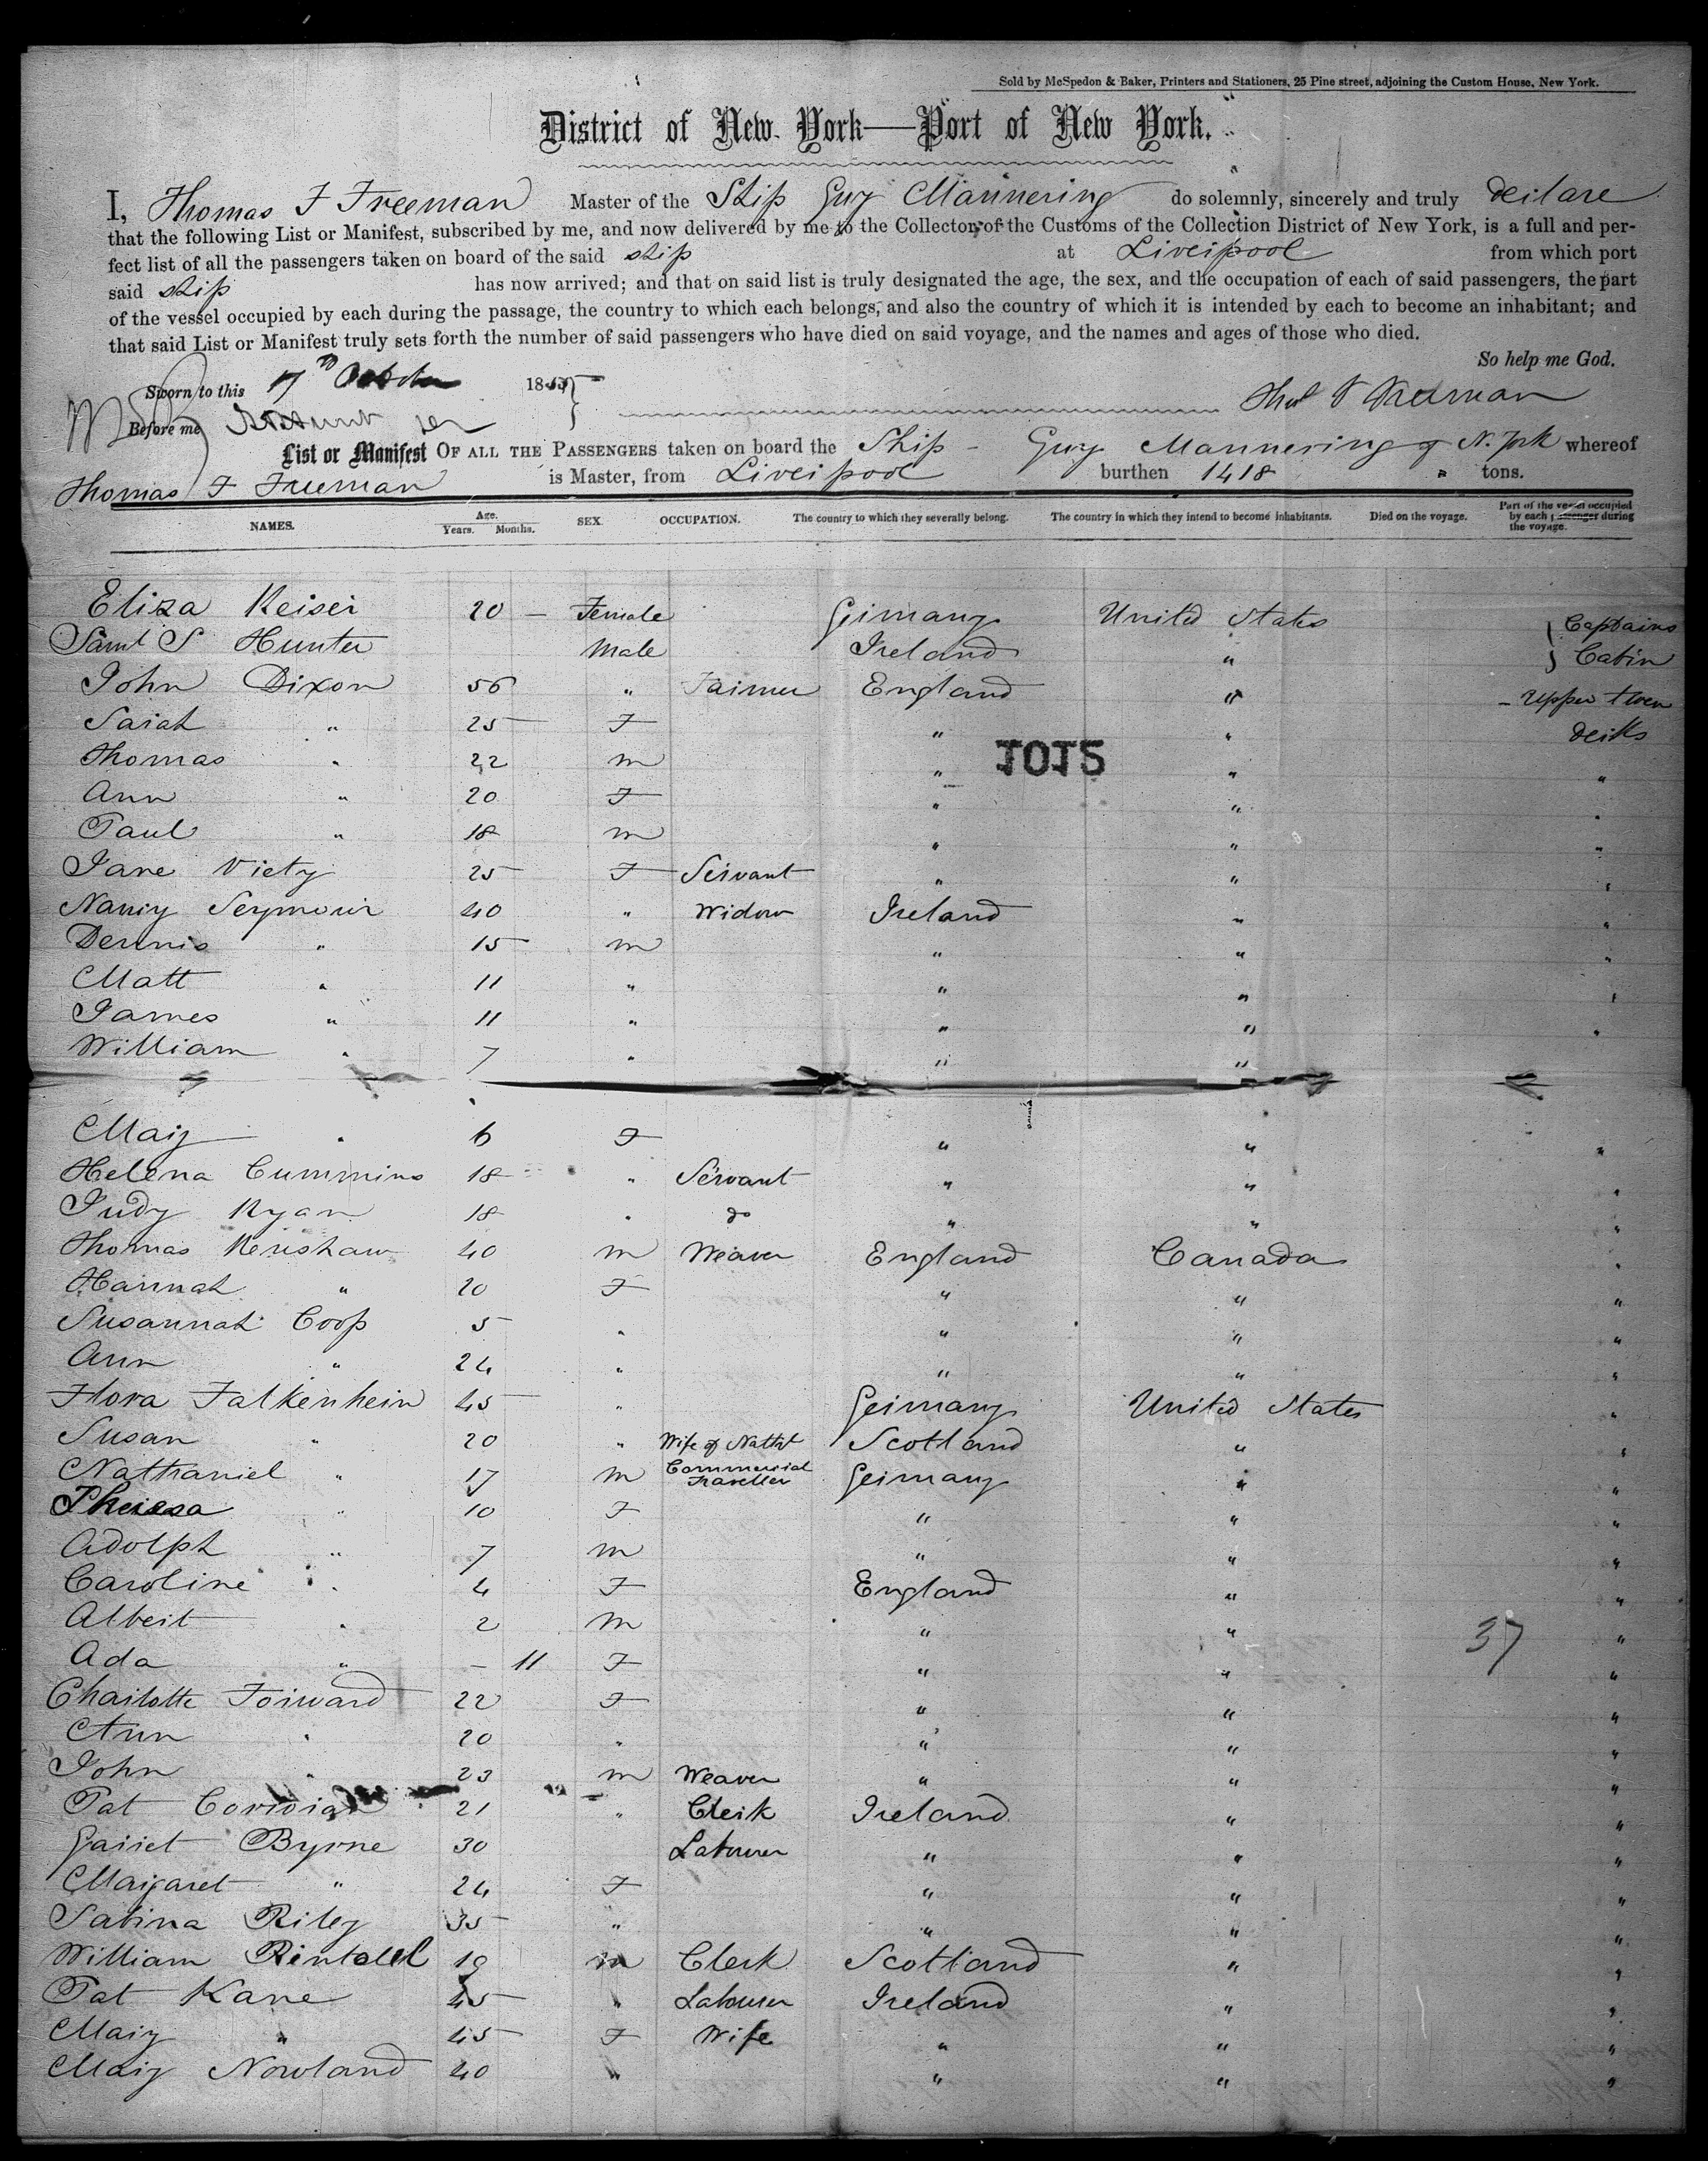 Sold by McSpedon & Baker, Printers and Stationers, 25 Pine street, adjoining the Custom House, New York.
District of New York—Port of New York.
I, Thomas F Freeman Master of the Ship Guy Mannering do solemnly, sincerely and truly declare
that the following List or Manifest, subscribed by me, and now delivered by me to the Collector of the Customs of the Collection District of New York, is a full and per-
fect list of all the passengers taken on board of the said ship at Liverpool from which port
said ship has now arrived; and that on said list is truly designated the age, the sex, and the occupation of each of said passengers, the part
of the vessel occupied by each during the passage, the country to which each belongs, and also the country of which it is intended by each to become an inhabitant; and
that said List or Manifest truly sets forth the number of said passengers who have died on said voyage, and the names and ages of those who died.
So help me God.
Sworn to this 17th October 185
Thos F Freeman
Before me
List or Manifest OF ALL THE PASSENGERS taken on board the Ship - Guy Mannering of N. York whereof
Thomas F Freeman is Master, from Liverpool burthen 1418 " tons.
NAMES. Age. Years. Months. SEX. OCCUPATION. The country to which they severally belong. The country in which they intend to become inhabitants. Died on the voyage. Part of the vessel occupied by each passenger during the voyage.
Eliza Keiser 20 – Female Germany United States Captains
Saml S Hunter Male Ireland " Cabin
John Dixon 56 " Farmer England " – Upper twen
Sarah " 25 F " " decks
1015
Thomas " 22 m " " "
Ann " 20 F " " "
Paul " 18 m " " "
Jane Viety 25 F Servant " " "
Nancy Seymour 40 " Widow Ireland " "
Dennis " 15 m " " "
Matt " 11 " " " "
James " 11 " " " "
William " 7 " " "
Mary " 6 F " " "
Helena Cummins 18 " Servant " " "
Judy Ryan 18 " do " " "
Thomas Kenshaw 40 m Weaver England Canada "
Hannah " 20 F " " "
Susannah Coop 5 " " " "
Ann " 24 " " " "
Flora Falkenhein 45 " Germany United States "
Susan " 20 " Wife of Nathl Scotland " "
Nathaniel " 17 m Commercial Traveller Germany " "
Theresa " 10 F " " "
Adolph " 7 m " " "
Caroline " 4 F England " "
Albert " 2 m " " "
37
Ada " – 11 F " " "
Charlotte Forward 22 F " " "
Ann " 20 " " " "
John " 23 m Weaver " " "
Pat 21 " Clerk Ireland " "
Garret Byrne 30 Labourer " " "
Margaret " 24 F " " "
Sabina Riley 35 " " " "
William Rintoul 19 m Clerk Scotland " "
Pat Kane 45 " Labourer Ireland " "
Mary " 45 F Wife " " "
Mary Nowland 40 " " " "